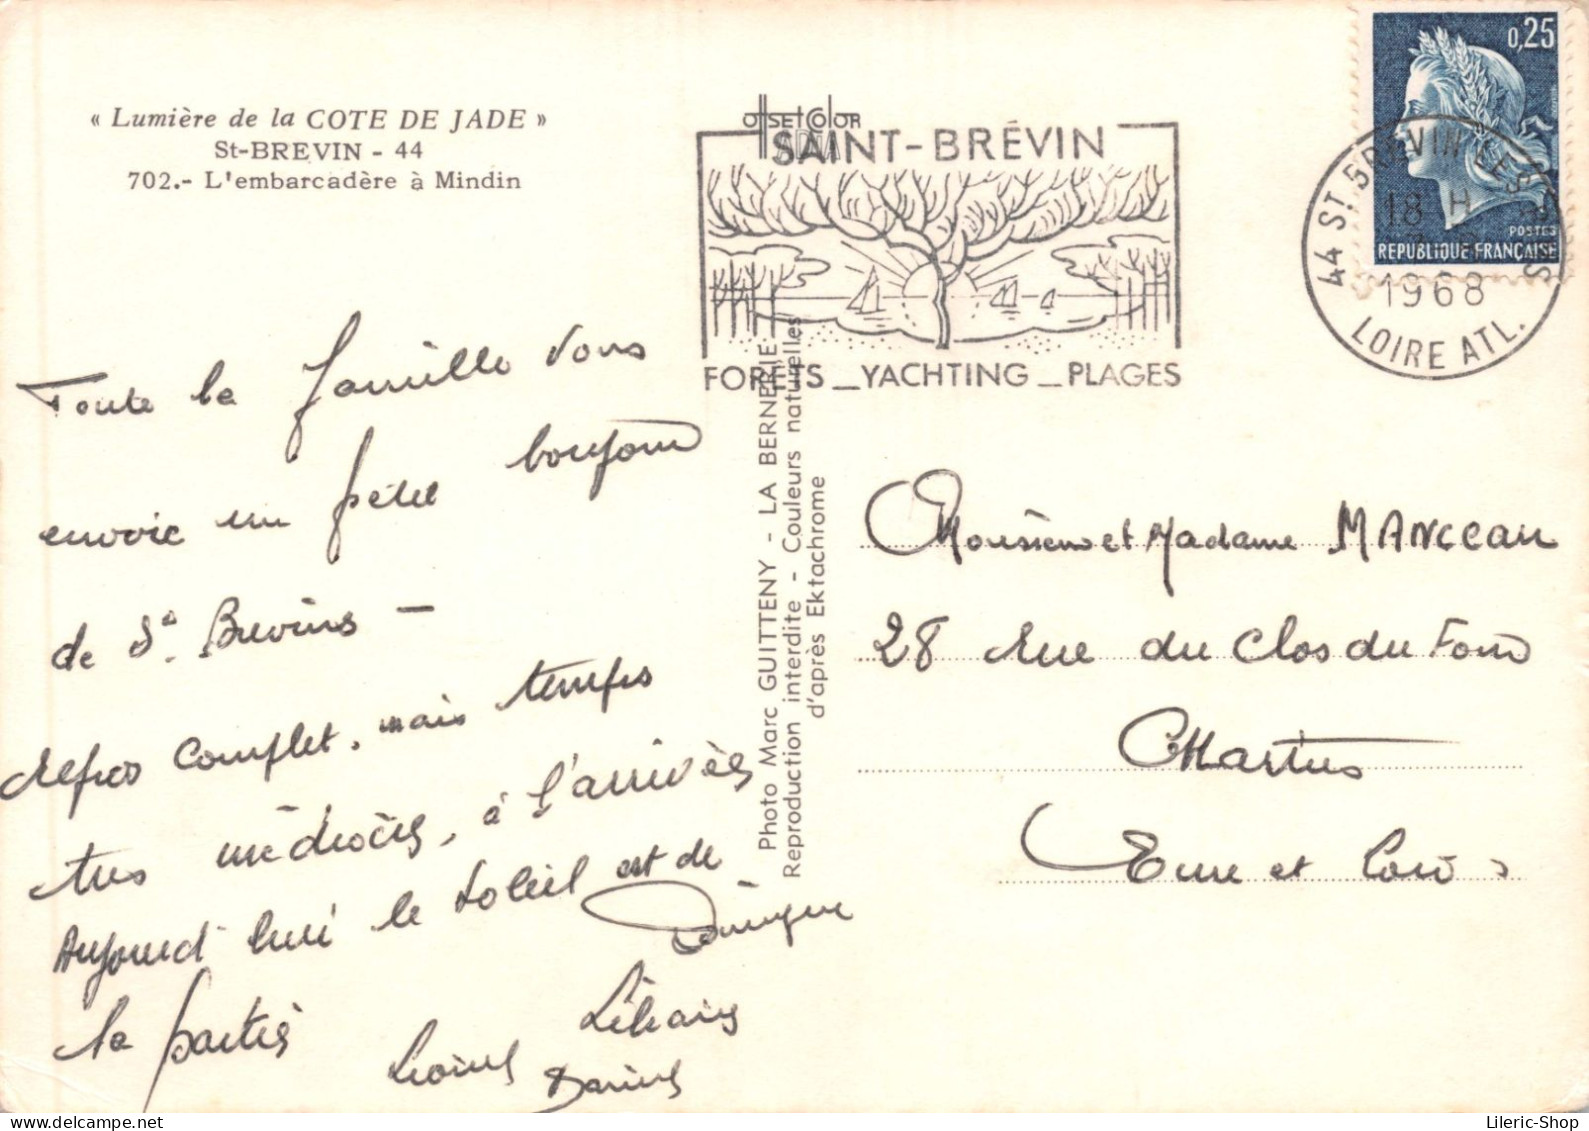 « Lumière de la COTE DE JADE »
St-BREVIN - 44
702.- L'embarcadère à Mindin
OffSEt COlOR
SAINT-BRÉVIN
FORETS _ YACHTING _ PLAGES
0,25
POSTES
REPUBLIQUE FRANÇAISE
44 ST BREVIN LES PINS
18 H
1968
LOIRE ATL.
Toute la famille vous
envoie un petit bonjour
de St. Brevins –
repos complet, mais temps
tres médiocre, à l'arrivée
Aujourd'hui le soleil est de
la partie
Lionel
Dominique
Liliane
Daniel
Photo Marc GUITTENY - LA BERNERIE
Reproduction interdite - Couleurs naturelles
d'après Ektachrome
Monsieur et Madame MANCEAU
28 Rue du Clos du Four
Chartres
Eure et Loir
Lileric-Shop